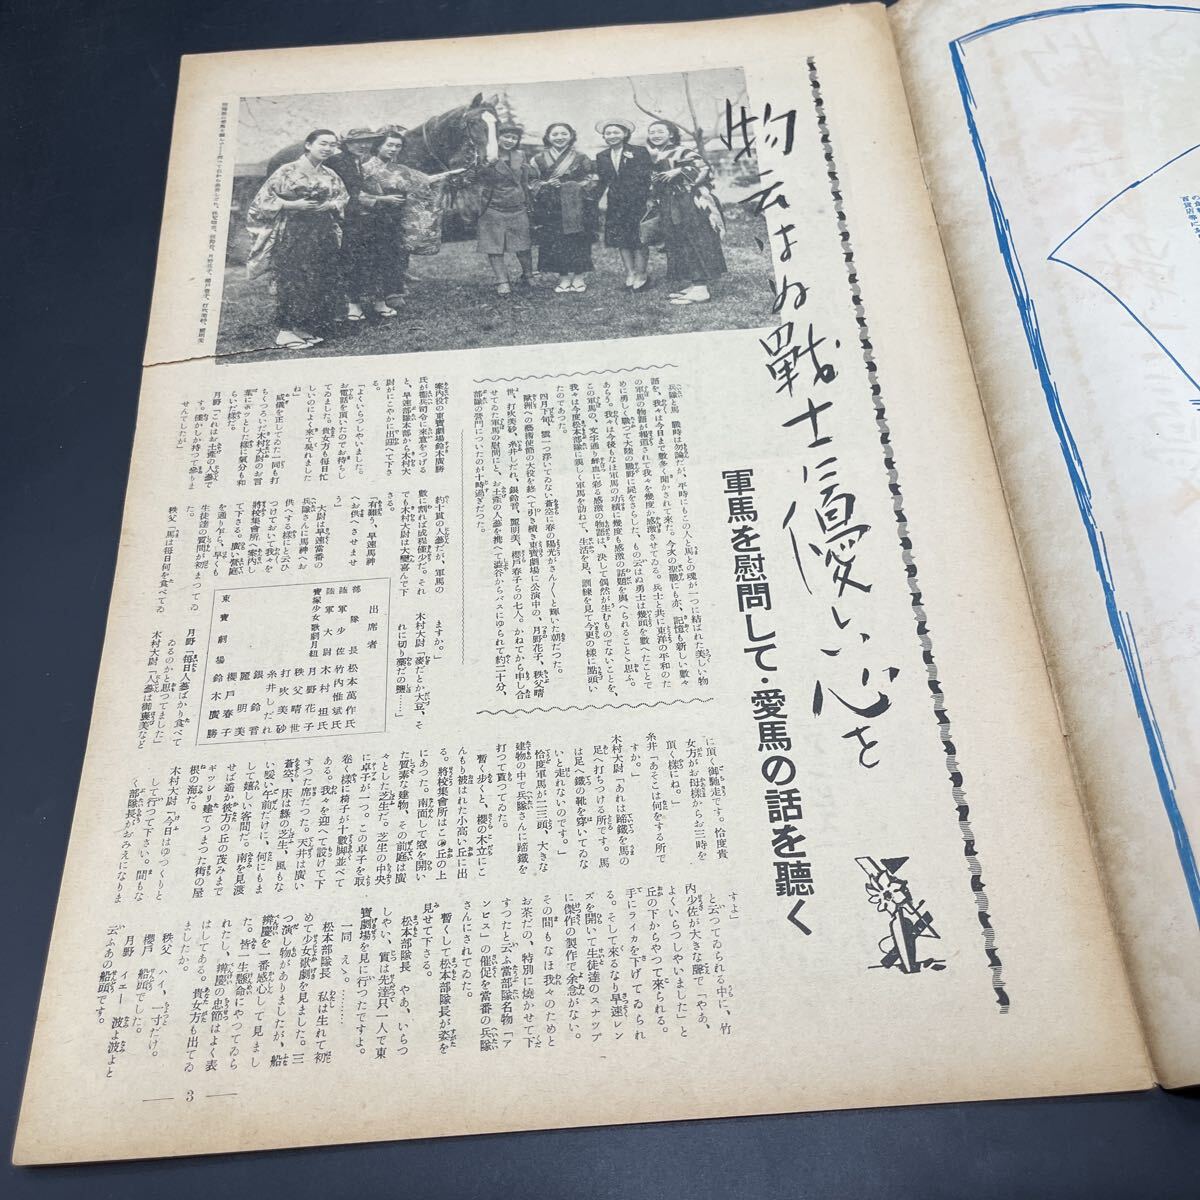 物云はぬ戰士に優しい心を
軍馬を慰問して・愛馬の話を聽く
兵隊と馬 戰時は勿論だが、平時にもこの人と馬との魂が一つに結ばれた美しい物
語を、我々は今日まで數多く聞かされて來た。今次の聖戰にも亦、記憶も新しい數々
の軍馬の物語が報道されて我々を幾度か感激させてゐる。兵士と共に東洋の平和のた
めに勇しく戰つて大陸の曠野に屍をさらした、もの云はぬ勇士は幾頭を數へたことで
あらう。我々は今後もなほ軍馬の功績に幾度も感激の話題を與へられることゝ思ふ。
この軍馬の、文字通り鮮血に彩る感激の物語は、決して偶然が生むものでないことを、
我々は今度松本部隊に親しく軍馬を訪ねて、生活を見、訓練を見て今更の樣に點頭い
たのであつた。
四月下旬、雲一つ浮いてゐない蒼空に春の陽光がさん／＼と輝いた朝だつた。
歐洲への藝術使節の大役を終へて引き續き東寶劇場に公演中の、月野花子、秩父晴
世、打吹美砂、糸井しだれ、銀鈴音、麗明美、櫻戸春子らの七人。かねてから申し合
せてゐた軍馬の慰問にと、お土産の人蔘を携へて澁谷からバスにゆられて約二十分、
部隊の營門についたのが十時過ぎだつた。
案内役の東寶劇場鈴木廣勝
氏が衞兵司令に來意をつげる
と、早速部隊本部から木村大
尉がにこやかに出迎へて下さ
る。
「よくいらつしやいました。
お電話を頂いたのでお待ちし
てゐました。貴女方も毎日忙
しいのによく來て呉れました
ね」
威儀を正してゐた一同も打
ちくつろいだ木村大尉のお言
葉にホッとした樣に氣分も和
らいだ樣だ。
月野「これはお土產の人蔘で
す。僅かしか持つて參りま
せんでしたが」
約十貫の人蔘だが、軍馬の
數に割れば成程僅少だ。それ
でも木村大尉は大變喜んで下
「有難う、早速馬神
へお供へさせませ
う」
大尉は早速當番の
兵隊さんに馬神へお
供へする樣にと云ひ
つけておいて我々を
將校集會所へ案内し
て下さる。廣い營庭
を通り乍ら、早くも
生徒達の質問が初まつてゐ
た。
秩父「馬は毎日何を食べてゐ
ますか。」
木村大尉「麥だとか大豆、そ
れに切り藁だの鹽……」
出席者
部隊長 松本萬作氏
陸軍少佐 竹内惟斌氏
陸軍大尉 木村坦氏
寶塚少女歌劇月組
月野花子
秩父晴世
打吹美砂
糸井しだれ
銀鈴音
麗明美
櫻戸春子
東寶劇場 鈴木廣勝
月野「毎日人蔘ばかり食べて
ゐるのかと思つてました」
木村大尉「人蔘は御褒美など
に頂く御馳走です。恰度貴
女方がお母樣からお三時を
頂く樣にね。」
糸井「あそこは何をする所で
すか。」
木村大尉「あれは蹄鐵を馬の
足へ打ちつける所です。馬
は足へ鐵の靴を穿いてゐな
いと走れないのです。」
恰度軍馬が二三頭、大きな
建物の中で兵隊さんに蹄鐵を
打つて貰つてゐた。
暫く步くと、櫻の木立にこ
んもり被はれた小高い丘に出
る。將校集會所はこの丘の上
にあつた。南面して窓を開い
た質素な建物、その前庭は廣
々とした芝生だ。芝生の中央
に卓子が一つ。この卓子を取
卷く樣に椅子が十數脚並べて
ある。我々を迎へて設けて下
すつた席だつた。天井は廣い
蒼空、床は綠の芝生、風もな
い暖い午前だけに、何にもま
して嬉しい客間だ。南を見渡
せば遥か彼方の丘の茂みまで
ギッシリ建てつまつた街の屋
根の海だ。
木村大尉「今日はゆつくりと
して行つて下さい。間もな
く部隊長がおみえになりま
すよ」
と云つてゐられる中に、竹
内少佐が大きな聲で「やあ、
よくいらつしやいました」と
丘の下からやつて來られる。
手にライカを下げてゐられ
る。そして來るなり早速レン
ズを開いて生徒達のスナップ
に傑作の製作で余念がない。
その間もなほ我々のためと
お茶だの、特別に燒かせて下
すつたと云ふ當部隊名物「ア
ンビス」の催促を當番の兵隊
さんにされてゐた。
暫くして松本部隊長が姿を
見せて下さる。
松本部隊長 やあ、いらつ
しやい、實は先達只一人で東
寶劇場を見に行つたですよ。
一同 えゝ。……
松本部隊長 私は生れて初
めて少女歌劇を見ました。三
つ演し物がありましたが、船
辨慶を一番感心して見まし
た。皆一生懸命にやつてゐら
れたし、辨慶の忠節はよく表
はしてある。貴女方も出てゐ
ましたか。
秩父 ハイ、一寸だけ。
櫻戸 船頭でした。
月野 イエー 波よ波よと
云ふあの船頭です。
— 3 —